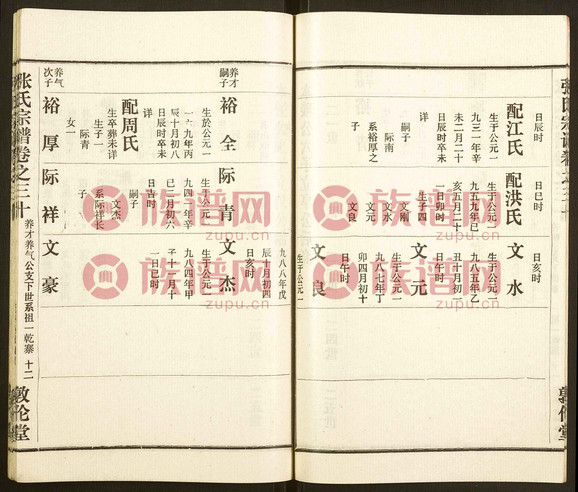 張氏宗譜卷之三十
敦伦堂
日辰时
配江氏
生於公元一
九三一年辛
未二月二十
日辰时卒未
详
嗣子
际南
系裕厚之
子
日巳时
配洪氏
生于公元一
九五九年己
亥五月二十
一日卯时
生子四
文刚
文元
文水
文良
日亥时
文水
生于公元一
九八五年乙
丑十月初一
日午时
文元
生于公元一
九八七年丁
卯四月初十
日午时
文良
生于公元一
九八八年戊
辰十月初四
日亥时
养才
嗣子
裕全
生於公元一
九年丙
辰十月初八
日辰时卒未
详
配周氏
生卒葬未详
生子一
际青
女一
际青
生于公元一
九四一年辛
巳二月初六
日吉时
嗣子
文杰
系际祥长
子
文杰
生于公元一
九八四年甲
子十一月十
日巳时
养气
次子
裕厚
际祥
文豪
张氏宗譜卷之三十
养才养气公支下世系祖一乾寨
十二
敦伦堂
族谱网
zupu.cn
族谱网
zupu.cn
族谱网
zupu.cn
族谱网
zupu.cn